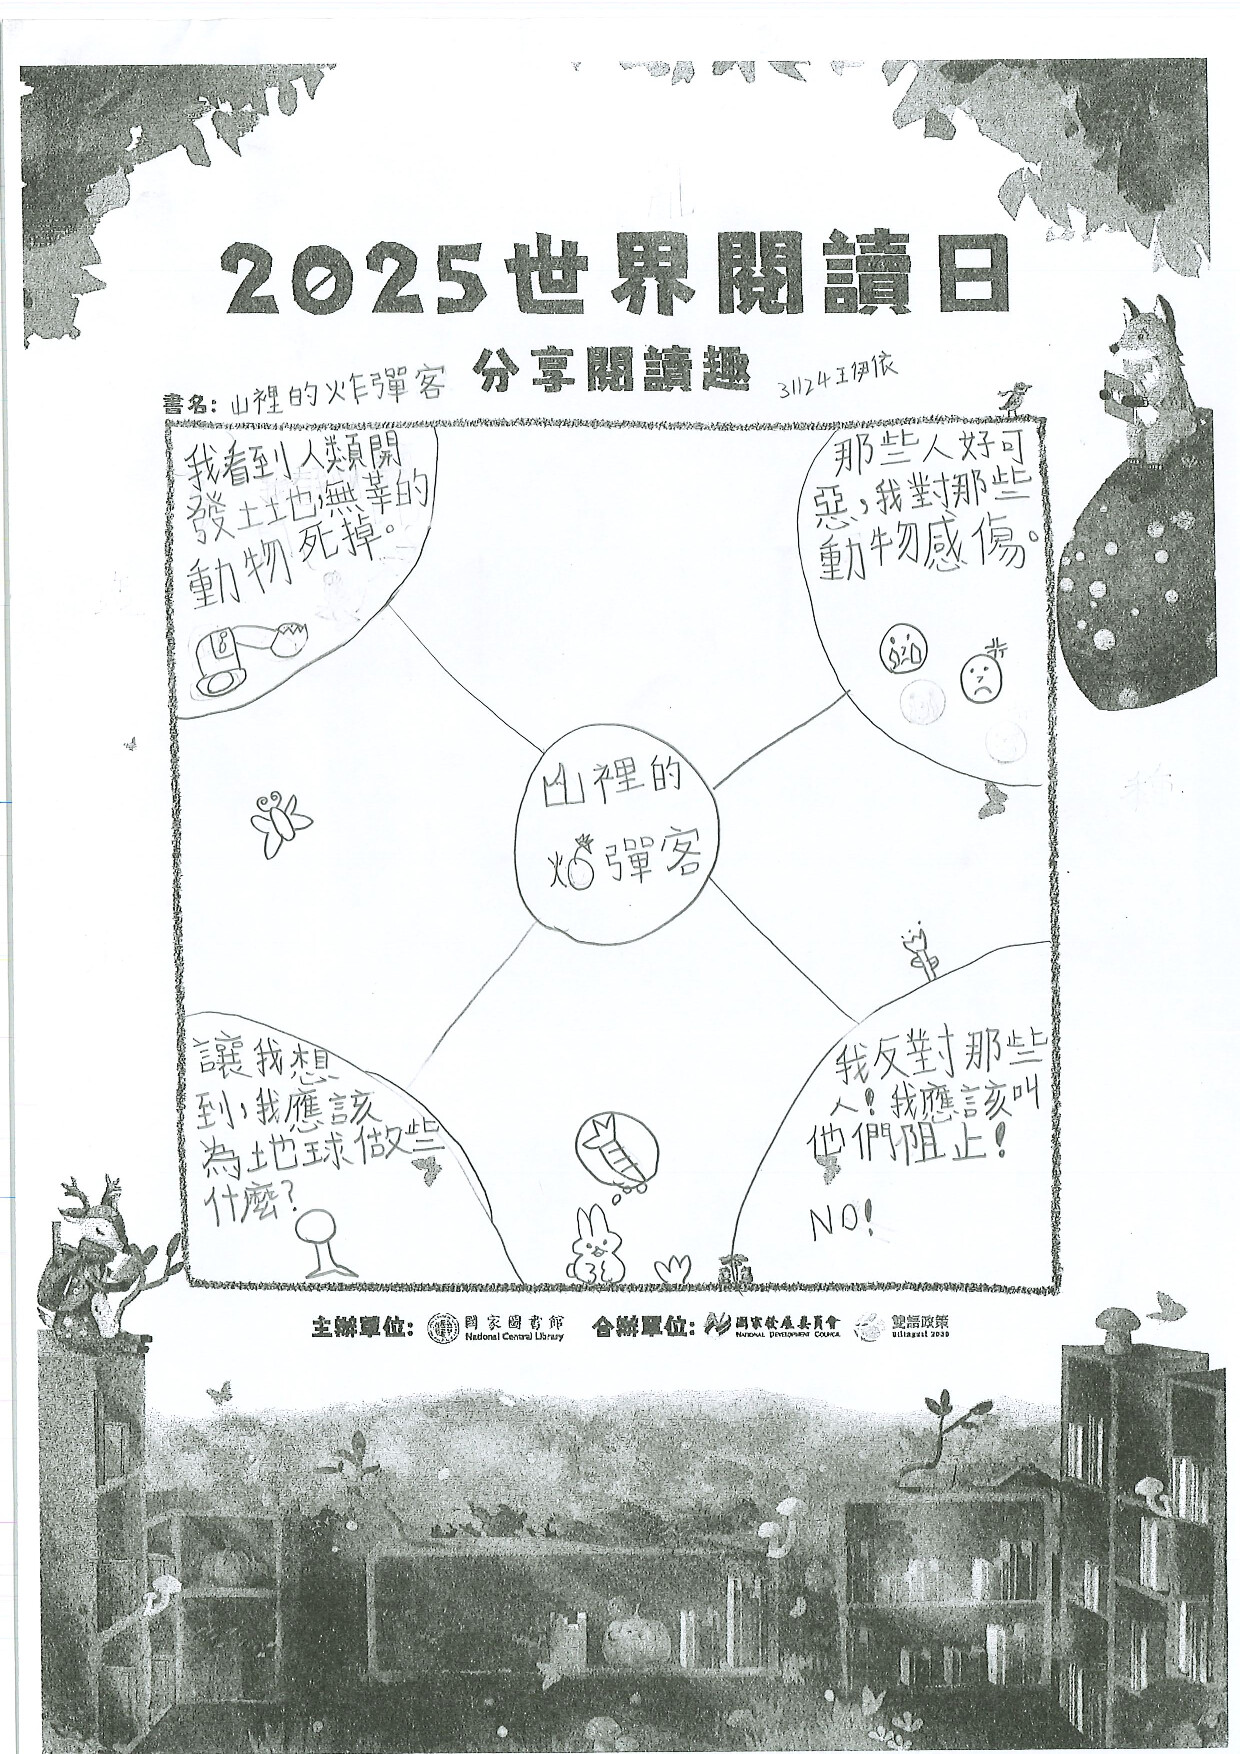 2025世界閱讀日
分享閱讀趣
書名: 山裡的炸彈客
31124王伊依
我看到人類開
發土地,無辜的
動物死掉。
那些人好可
惡,我對那些
動物感傷。
山裡的
炸彈客
讓我想
到,我應該
為地球做些
什麼?
我反對那些
人!我應該叫
他們阻止!
NO!
主辦單位: 國家圖書館 National Central Library 合辦單位: 國家發展委員會 NATIONAL DEVELOPMENT COUNCIL 雙語政策 Bilingual 2030